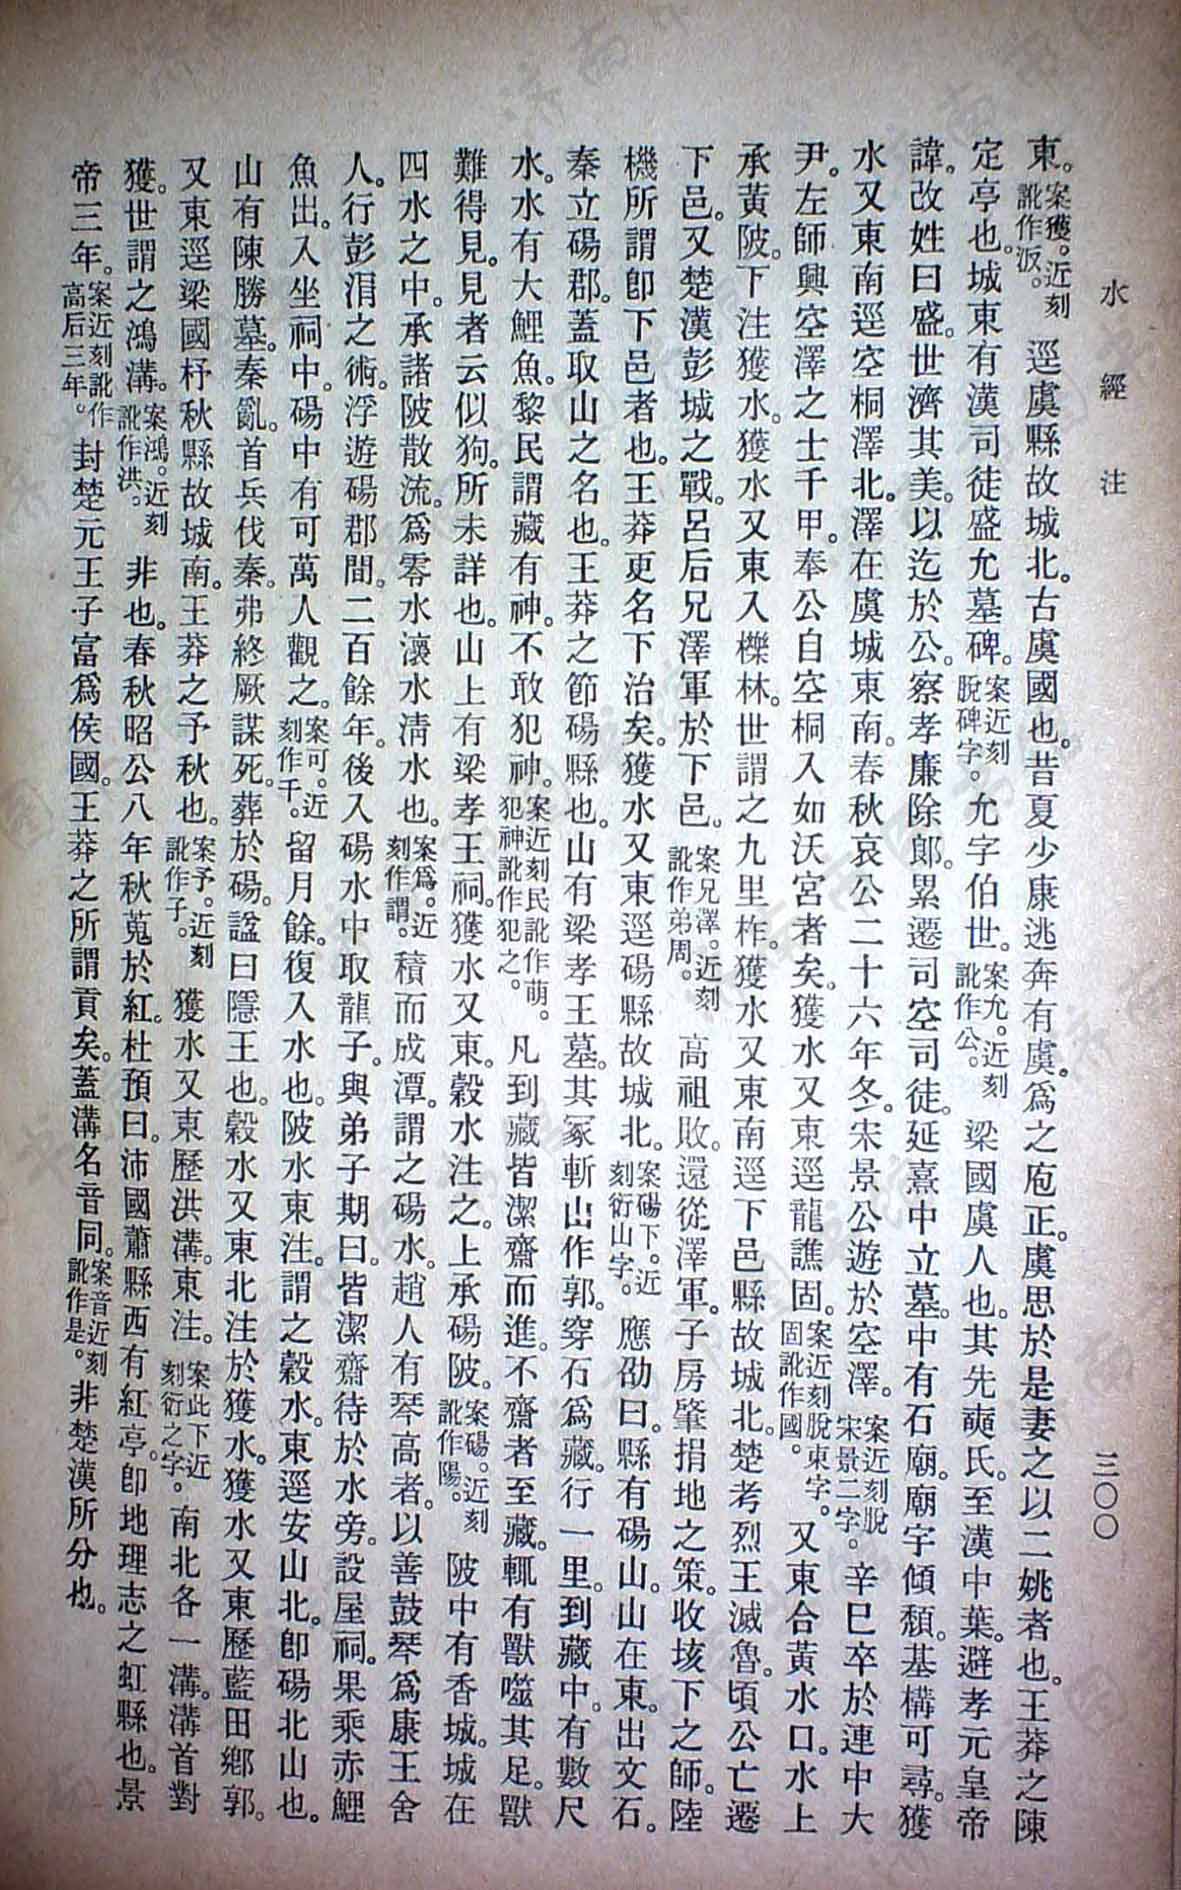 水經注
三〇〇
東。案獲。近刻訛作汳。逕虞縣故城北。古虞國也。昔夏少康逃奔有虞。爲之庖正。虞思於是妻之以二姚者也。王莽之陳
定亭也。城東有漢司徒盛允墓碑。案近刻脫碑字。允字伯世。案允。近刻訛作公。梁國虞人也。其先奭氏。至漢中葉。避孝元皇帝
諱。改姓曰盛。世濟其美。以迄於公。察孝廉除郎。累遷司空司徒。延熹中立墓。中有石廟。廟宇傾頹。基構可尋。獲
水又東南逕空桐澤北。澤在虞城東南。春秋哀公二十六年冬。宋景公遊於空澤。案近刻脫宋景二字。辛巳卒於連中大
尹。左師興空澤之士千甲。奉公自空桐入如沃宮者矣。獲水又東逕龍譙固。案近刻脫東字。固訛作國。又東合黃水口。水上
承黃陂。下注獲水。獲水又東入櫟林。世謂之九里柞。獲水又東南逕下邑縣故城北。楚考烈王滅魯。頃公亡遷
下邑。又楚漢彭城之戰。呂后兄澤軍於下邑。案兄澤。近刻訛作弟周。高祖敗。還從澤軍。子房肇捐地之策。收垓下之師。陸
機所謂卽下邑者也。王莽更名下治矣。獲水又東逕碭縣故城北。案碭下。近刻衍山字。應劭曰。縣有碭山。山在東。出文石。
秦立碭郡。蓋取山之名也。王莽之節碭縣也。山有梁孝王墓。其冢斬山作郭。穿石爲藏。行一里。到藏中。有數尺
水。水有大鯉魚。黎民謂藏有神。不敢犯神。案近刻民訛作萌。犯神訛作犯之。凡到藏皆潔齋而進。不齋者至藏。輒有獸噬其足。獸
難得見。見者云似狗。所未詳也。山上有梁孝王祠。獲水又東。穀水注之。上承碭陂。案碭。近刻訛作陽。陂中有香城。城在
四水之中。承諸陂散流。爲零水瀤水清水也。案爲。近刻作謂。積而成潭。謂之碭水。趙人有琴高者。以善鼓琴爲康王舍
人。行彭涓之術。浮遊碭郡間。二百餘年。後入碭水中取龍子。與弟子期曰。皆潔齋待於水旁。設屋祠。果乘赤鯉
魚出。入坐祠中。碭中有可萬人觀之。案可。近刻作千。留月餘。復入水也。陂水東注。謂之穀水。東逕安山北。卽碭北山也。
山有陳勝墓。秦亂。首兵伐秦。弗終厥謀死。葬於碭。諡曰隱王也。穀水又東北注於獲水。獲水又東歷藍田鄉郭。
又東逕梁國杼秋縣故城南。王莽之予秋也。案予。近刻訛作子。獲水又東歷洪溝。東注。案此下近刻衍之字。南北各一溝。溝首對
獲。世謂之鴻溝。案鴻。近刻訛作洪。非也。春秋昭公八年秋蒐於紅。杜預曰。沛國蕭縣西有紅亭。卽地理志之虹縣也。景
帝三年。案近刻訛作高后三年。封楚元王子富爲侯國。王莽之所謂貢矣。蓋溝名音同。案音近刻訛作是。非楚漢所分也。